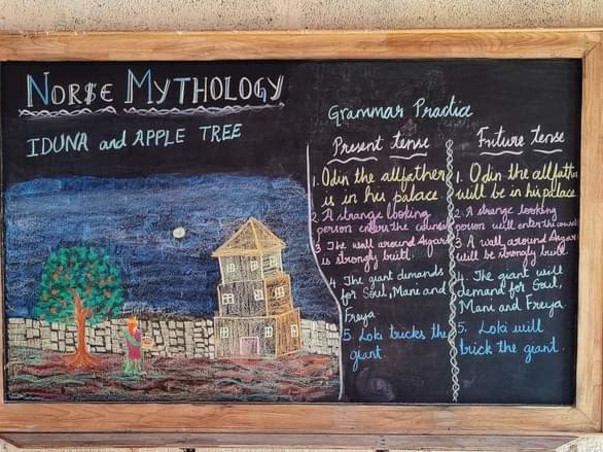 NORSE MYTHOLOGY
IDUNA and APPLE TREE
Grammar Practice
Present tense
1. Odin the allfather
is in his palace.
2. A strange looking
person enters the council
3 The wall around Asgar
is strongly built.
4 The giant demands
for Soul, Mani and
Freya.
5. Loki tricks the
giant.
Future tense
1. Odin the allfather
will be in his palace
2. A strange looking
person will enter the
3 A wall around Asgar
will be strongly built.
4. The giant will
demand for Soul,
Mani and Freya.
5. Loki will
trick the giant.